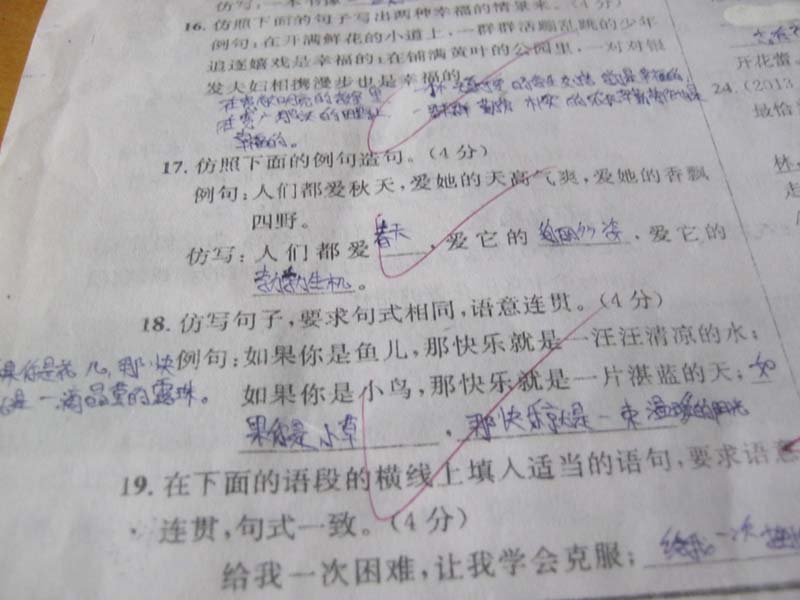 仿写:一本书像
16. 仿照下面的句子写出两种幸福的情景来。(4分)
例句:在开满鲜花的小道上,一群群活蹦乱跳的少年
追逐嬉戏是幸福的;在铺满黄叶的公园里,一对对银
发夫妇相携漫步也是幸福的。
在宽敞明亮的教室里
是幸福的;
在宽广
勤劳 朴实 的农民
幸福的。
17. 仿照下面的例句造句。(4分)
例句:人们都爱秋天,爱她的天高气爽,爱她的香飘
四野。
仿写:人们都爱春天,爱它的,爱它的
勃勃生机。
18. 仿写句子,要求句式相同,语意连贯。(4分)
果你是花儿,那快
例句:如果你是鱼儿,那快乐就是一汪汪清凉的水;
是一滴晶莹的露珠。
如果你是小鸟,那快乐就是一片湛蓝的天;如
果你是小草,那快乐就是一束温暖的阳光
19. 在下面的语段的横线上填入适当的语句,要求语意
连贯,句式一致。(4分)
给我一次困难,让我学会克服;给我一次
开花蕾
24. (2013
最恰
林
走